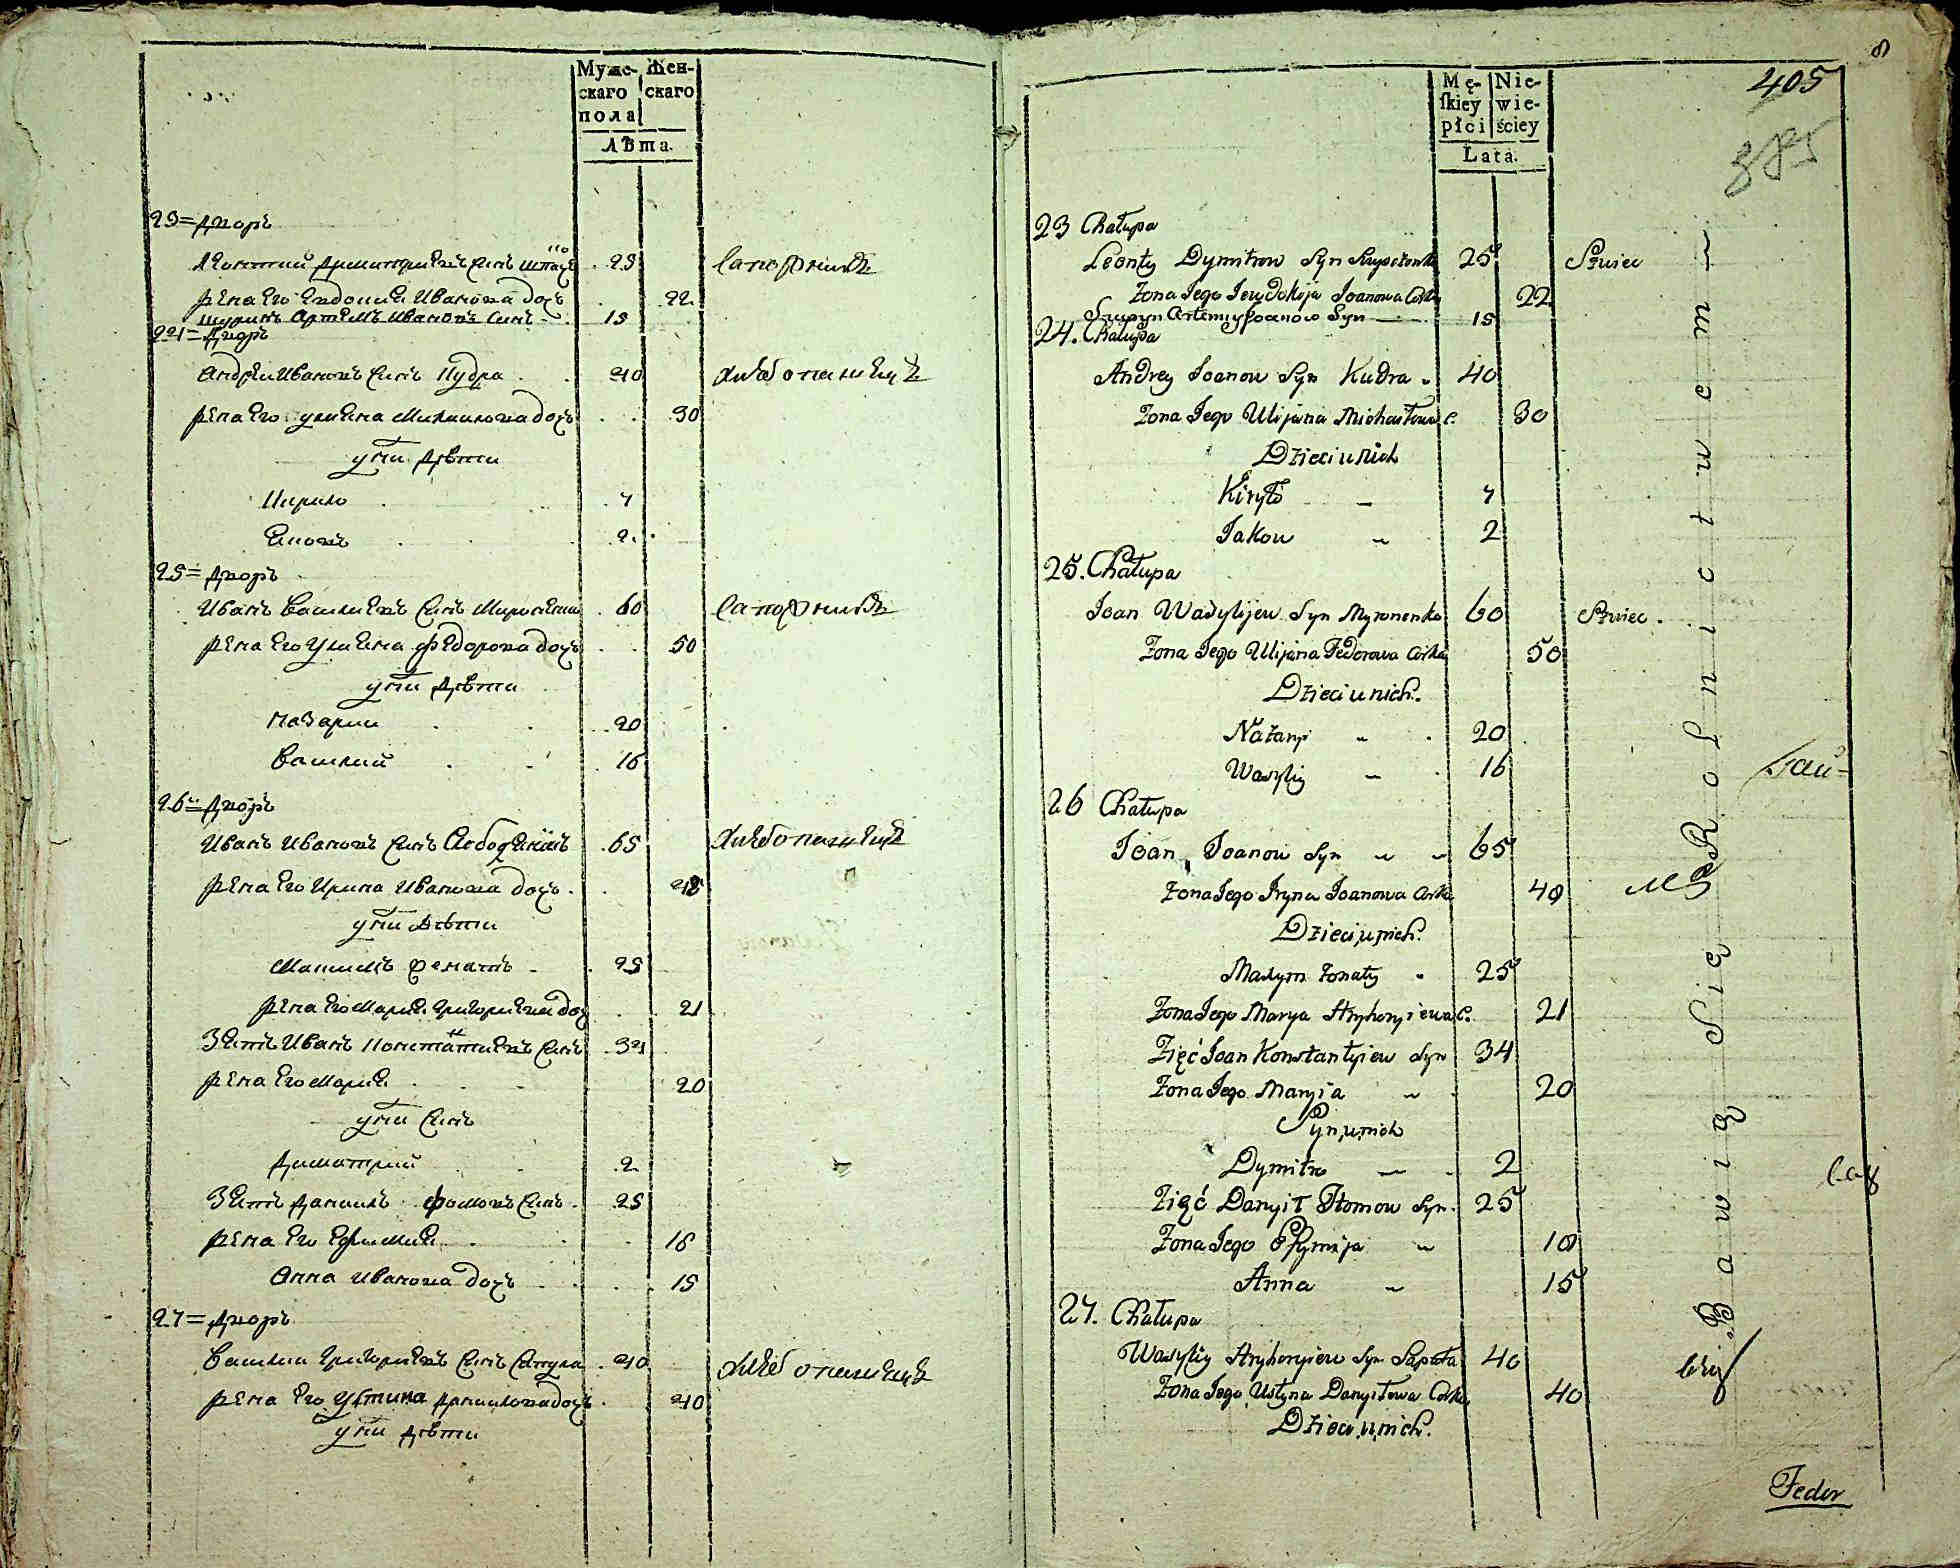 Муже- Жен-
скаго скаго
пола
Лѣта.
23 = Дворъ
Леонтий Димитриевъ Синъ 25 Сапожникъ
Жена Его Евдокия Иванова дочь 22
шуринъ Артемъ Ивановъ Синъ 15
24 = Дворъ
Андрей Ивановъ Синъ Кудра 40 Хлебопашецъ
Жена Его Улияна Михайлова дочъ 30
у ни Дѣти
Кирило 7
Яковъ 2
25 = Дворъ
Иванъ Василиевъ Синъ Мироненко 60 Сапожникъ
Жена Его Улияна Федорова дочъ 50
у ни Дѣти
Назарий 20
Василий 16
26 = Дворъ
Иванъ Ивановъ Синъ 65 Хлебопашецъ
Жена Его Ирина Иванова дочъ 48
у ни Дѣти
Максимъ женатъ 25
Жена Его Мария Григориева доч 21
Зять Иванъ Константиевъ Синъ 34
Жена Его Мария 20
у ни Синъ
Димитрий 2
Зять Данилъ Фомовъ Синъ 25
Жена Его Ефимия 18
Анна Иванова дочъ 15
27 = Дворъ
Василий Григориевъ Синъ Сапула 40 Хлебопашецъ
Жена Его Устина Данилова дочъ 40
у ни Дѣти
8
405
385
Mę- Nie-
ſkiey wie-
płci ściey
Lata.
23 Chałupa
Leonty Dymitrow Syn 25 Szwiec
Zona Jego Jewdokija Joanowa Corka 22
Szuryn Artemiy Joanow Syn 15
24. Chałupa
Andrey Joanow Syn Kudra 40
Zona Jego Ulijana Michaiłowa C. 30
Dzieci u Nich
Kiryło 7
Jakow 2
25. Chałupa
Joan Wasylijew Syn Myronenko 60 Szwiec.
Zona Jego Ulijana Fedorowa Corka 50
Dzieci u nich.
Nazary 20
Wasyliy 16
26 Chałupa
Joan Joanow Syn 65
Zona Jego Iryna Joanowa Corka 48
Dzieci u nich.
Maxym zonaty 25
Zona Jego Marya Hryhoryiewa C. 21
Zięć Joan Konstantyiew Syn 34
Zona Jego Maryia 20
Syn u nich
Dymitr 2
Zięć Danyił Homow Syn. 25
Zona Jego Efymija 18
Anna 15
27. Chałupa
Wasyliy Hryhoryiew Syn Sapuła 40
Zona Jego Ustyna Danyiłowa Corka 40
Dzieci u nich.
Bawią Się Rolnictwem
Fedor